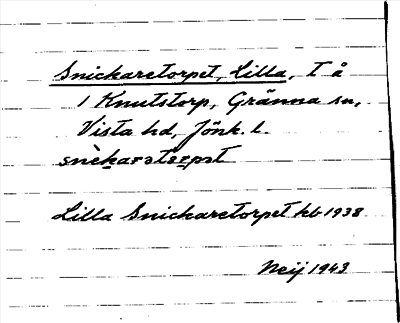 Snickaretorpet, Lilla, T å
1 Knutstorp, Gränna sn,
Vista hd, Jönk. l.
snèkarətɔrpət
Lilla Snickaretorpet kb 1938
Neij 1943